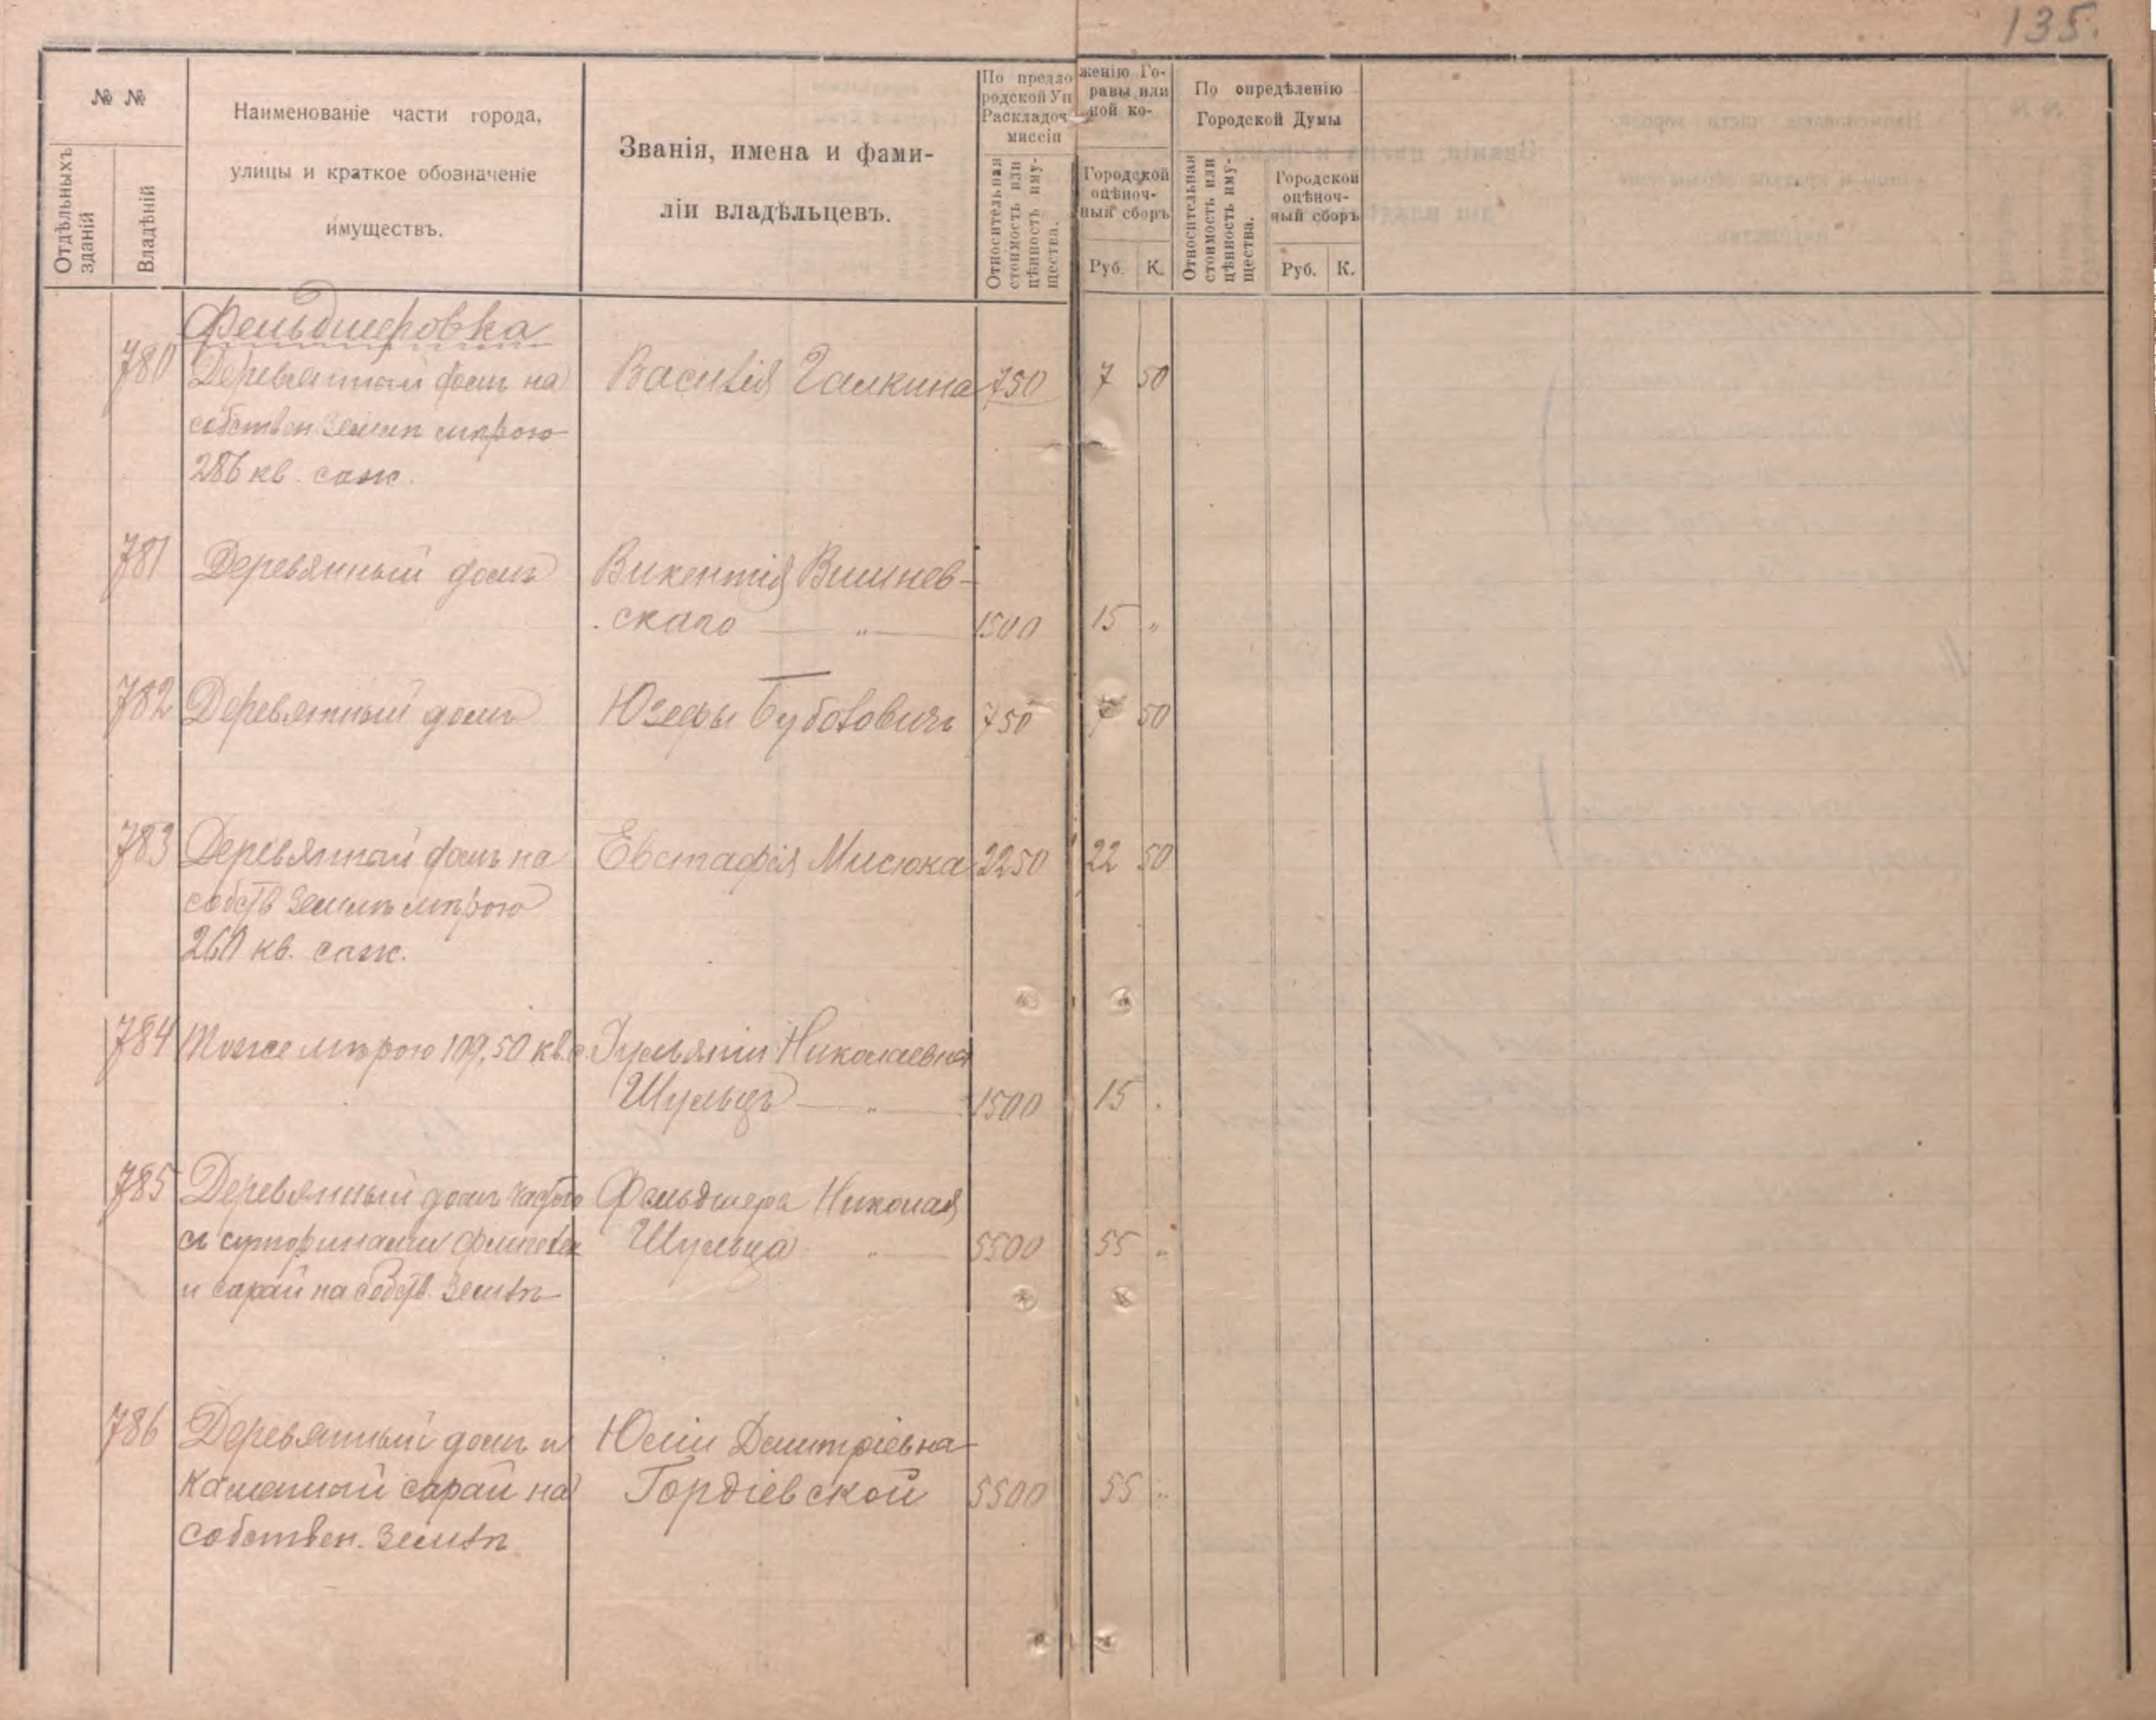 135.
№ №
Отдѣльныхъ зданій
Владѣній
Наименованіе части города,
улицы и краткое обозначеніе
имуществъ.
Званія, имена и фами-
ліи владѣльцевъ.
По предложенію Го-
родской Управы или
Раскладочной ко-
миссіи
Относительная стоимость или цѣнность иму-щества.
Городской
оцѣноч-
ный сборъ
Руб. К.
По опредѣленію
Городской Думы
Относительная стоимость или цѣнность иму-щества.
Городской
оцѣноч-
ный сборъ
Руб. К.
Фельдшеровка
780 Деревянный домъ на Василія Галкина 750 7 50
собствен землѣ мѣрою
286 кв. саж.
781 Деревянный домъ Викентія Вишнев-
скаго — „ — 1500 15 „
782 Деревянный домъ Юзефы Буболовичъ 750 7 50
783 Деревянный домъ на Евстафія Мисюка 2250 22 50
собств землѣ мѣрою
260 кв. саж.
784 Тоже мѣрою 109,50 кв. с. Іульяніи Николаевна
Шульцъ — „ — 1500 15 .
785 Деревянный домъ Фельдшера Николая
и сарай на собств. землѣ Шульца „ — 5500 55 „
786 Деревянный домъ и Юліи Дмитріевна
Каменный сарай на Гордіевской 5500 55 „
собствен. землѣ